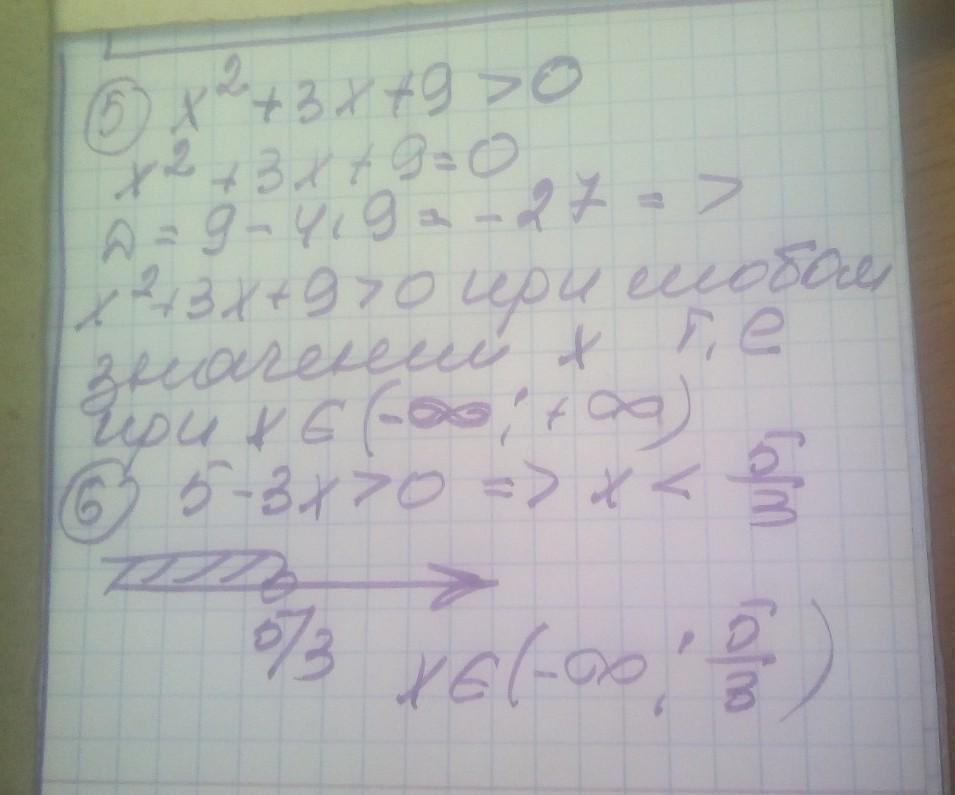 5) x² + 3x + 9 > 0
x² + 3x + 9 = 0
D = 9 - 4·9 = -27 =>
x² + 3x + 9 > 0 при любом
значении x т.е
при x ∈ (-∞; +∞)
6) 5 - 3x > 0 => x < 5/3
5/3
x ∈ (-∞; 5/3)